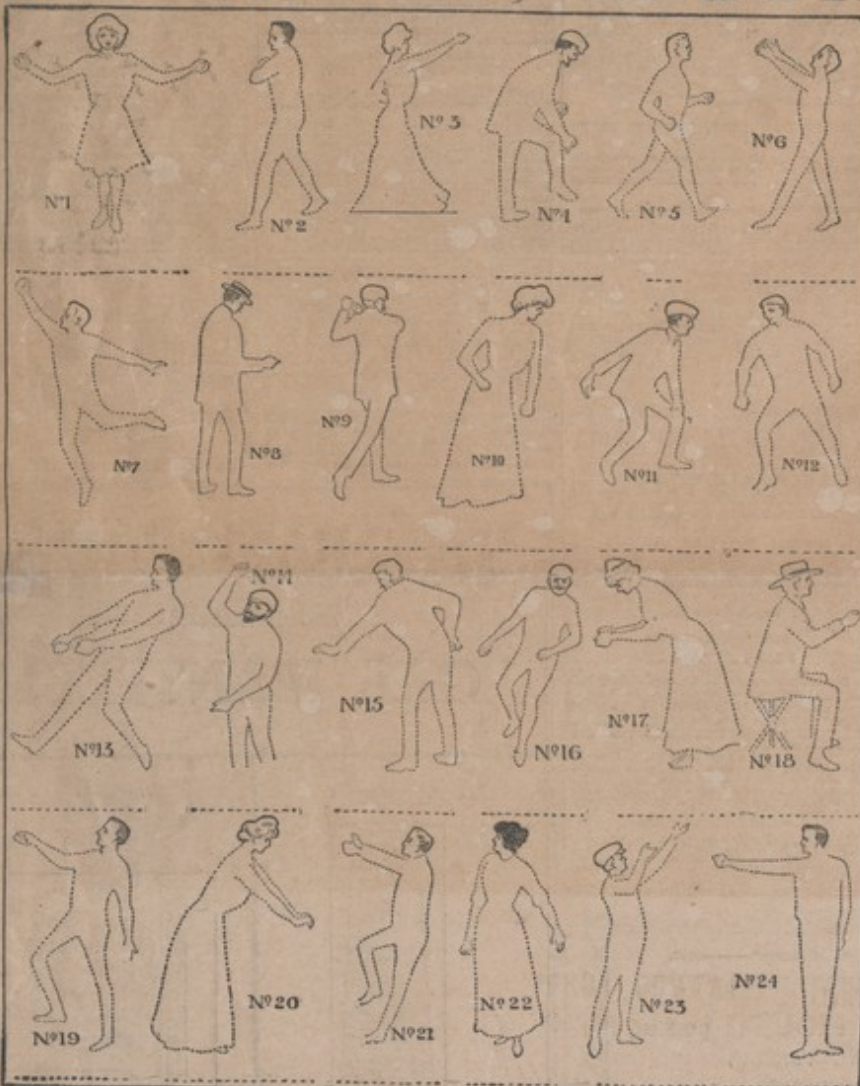 Nº1
Nº2
Nº3
Nº4
Nº5
Nº6
Nº7
Nº8
Nº9
Nº10
Nº11
Nº12
Nº13
Nº14
Nº15
Nº16
Nº17
Nº18
Nº19
Nº20
Nº21
Nº22
Nº23
Nº24